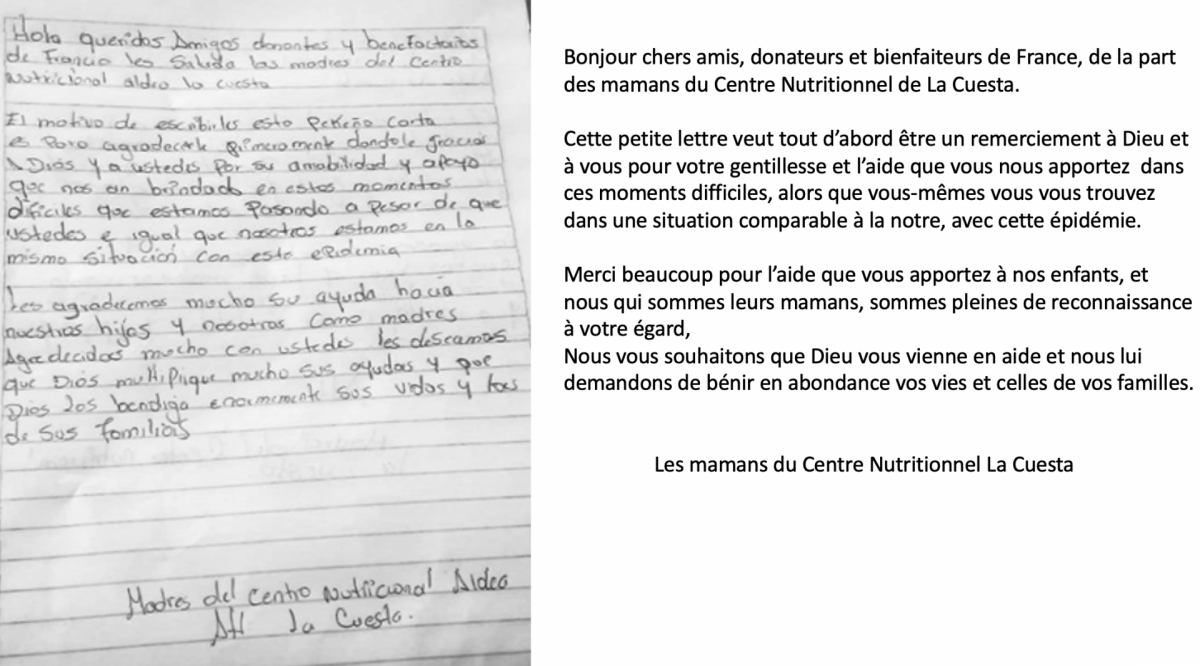 Hola queridos Amigos donantes y benefactores
de Francia les Saluda las madres del Centro
Nutricional aldea la cuesta
El motivo de escribirles esta Pekeña Carta
es Para agradecerle Primeramente dandole gracias
A Dios y a ustedes Por su amabilidad y apoyo
que nos an brindado en estos momentos
dificiles que estamos Pasando a Pesar de que
ustedes e igual que nosotros estamos en la
misma Situación con esta ePidemia
Les agradecemos mucho su ayuda hacia
nuestros hijos y nosotras Como madres
Agradecidas mucho con ustedes les deseamos
que Dios multiplique mucho sus ayudas y que
Dios los bendiga enormemente sus vidas y las
de sus familias
Madres del Centro Nutricional Aldea
La Cuesta.
Bonjour chers amis, donateurs et bienfaiteurs de France, de la part
des mamans du Centre Nutritionnel de La Cuesta.
Cette petite lettre veut tout d’abord être un remerciement à Dieu et
à vous pour votre gentillesse et l’aide que vous nous apportez dans
ces moments difficiles, alors que vous-mêmes vous vous trouvez
dans une situation comparable à la notre, avec cette épidémie.
Merci beaucoup pour l’aide que vous apportez à nos enfants, et
nous qui sommes leurs mamans, sommes pleines de reconnaissance
à votre égard,
Nous vous souhaitons que Dieu vous vienne en aide et nous lui
demandons de bénir en abondance vos vies et celles de vos familles.
Les mamans du Centre Nutritionnel La Cuesta